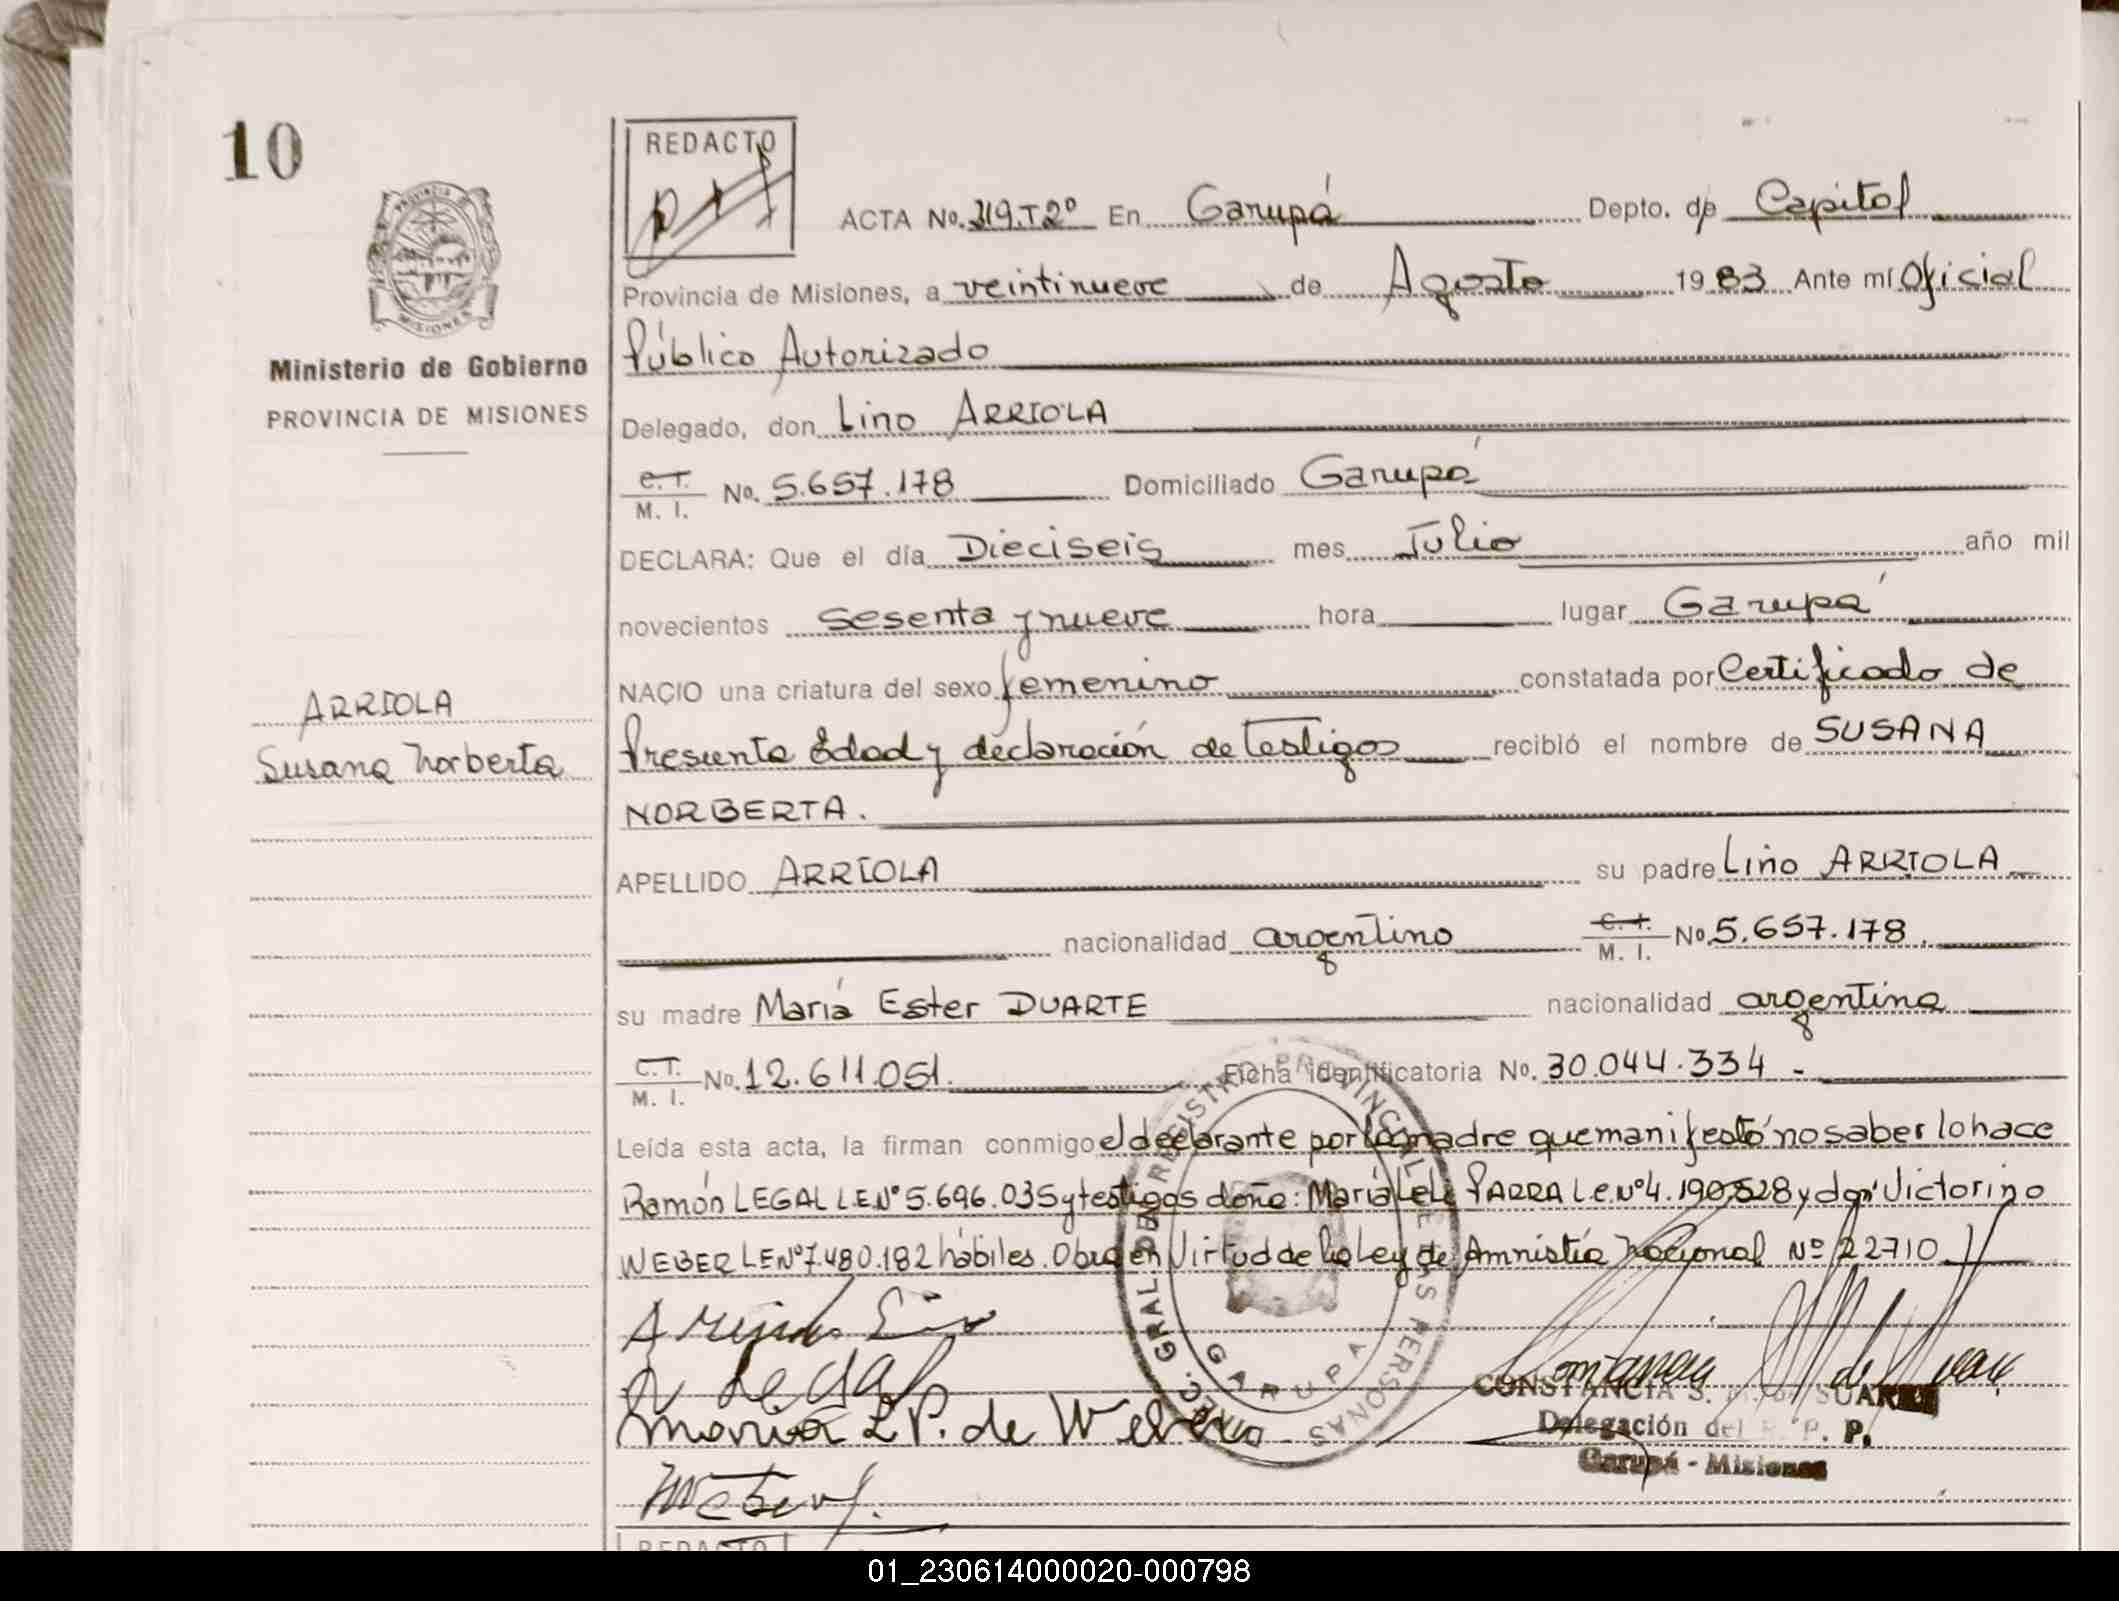 10
REDACTO
PROVINCIA
MISIONES
Ministerio de Gobierno
PROVINCIA DE MISIONES
ACTA No. 319.T2º En Garupá Depto. de Capital
Provincia de Misiones, a veintinueve de Agosto 1983 Ante mí Oficial
Público Autorizado
Delegado, don Lino ARRIOLA
C.T. M. I. No. 5.657.178 Domiciliado Garupá
DECLARA: Que el día Dieciseis mes Julio año mil
novecientos sesenta y nueve hora lugar Garupá
NACIO una criatura del sexo femenino constatada por Certificado de
Presunta Edad y declaración de Testigos recibió el nombre de SUSANA
NORBERTA.
ARRIOLA
Susana Norberta
APELLIDO ARRIOLA su padre Lino ARRIOLA
nacionalidad argentino C.I. M. I. No. 5.657.178.
su madre María Ester DUARTE nacionalidad argentina
C.T. M. I. No. 12.611.051. Ficha identificatoria No. 30.044.334 -
Leída esta acta, la firman conmigo el declarante por la madre que manifestó no saber lo hace
Ramón LEGAL L.E.Nº 5.696.035 y testigos doña: María Lele PARRA L.e.Nº 4.190.528 y don Victorino
WEBER LENº 7.480.182 hábiles. Obra en Virtud de la Ley de Amnistía Nacional Nº 22710
Arriola Lino
R Legal
Maria L P. de Weber
DIREC. GRAL DEL REGISTRO PROVINCIAL DE LAS PERSONAS
GARUPA
CONSTANCIA S. SUAREZ
Delegación del R. P. P.
Garupá - Misiones
REDACTO
01_230614000020-000798